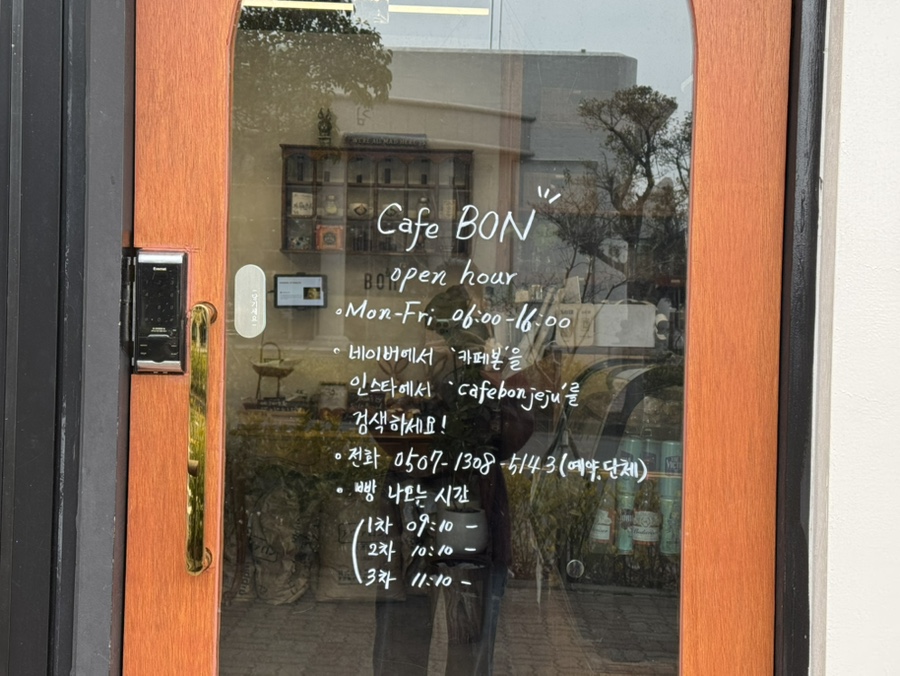 Cafe BON
open hour
Mon-Fri 06:00-16:00
네이버에서 '카페본'을
인스타에서 'cafebonjeju'를
검색하세요!
전화 0507-1308-5143(예약, 단체)
빵 나오는 시간
1차 09:10 -
2차 10:10 -
3차 11:10 -
당기세요
BON